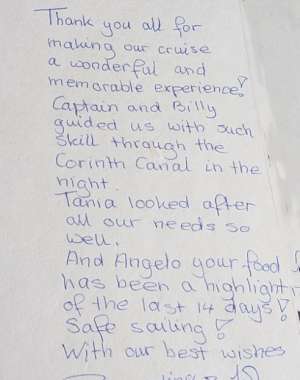 Thank you all for
making our cruise
a wonderful and
memorable experience!
Captain and Billy
guided us with such
skill through the
Corinth Canal in the
night.
Tania looked after
all our needs so
well.
And Angelo your food
has been a highlight
of the last 14 days!
Safe sailing!
With our best wishes